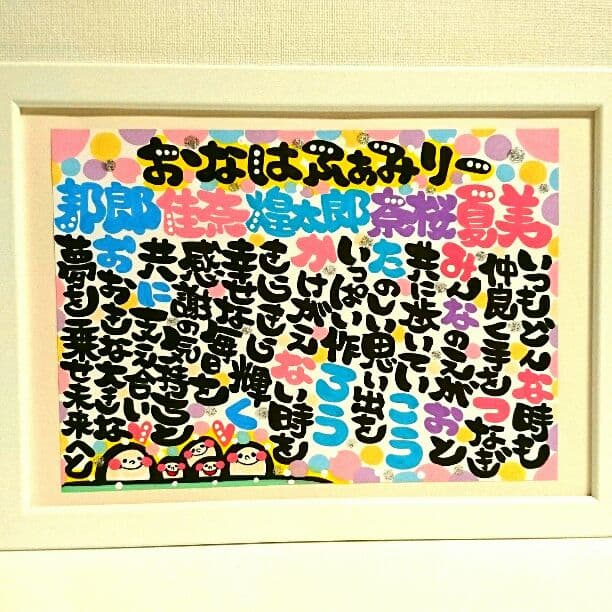 おなはふぁみりー
邦郎 佳奈 煌太郎 奈桜 夏美
いつもどんな時も
仲良く手をつなぎ
みんなのえがおと
共に歩いていこう
たのしい思い出を
いっぱい作ろう
かけがえない時を
きらきら輝く
幸せな毎日を
感謝の気持ちと
共に支え合い
おおきな大きな
夢を乗せ未来へと